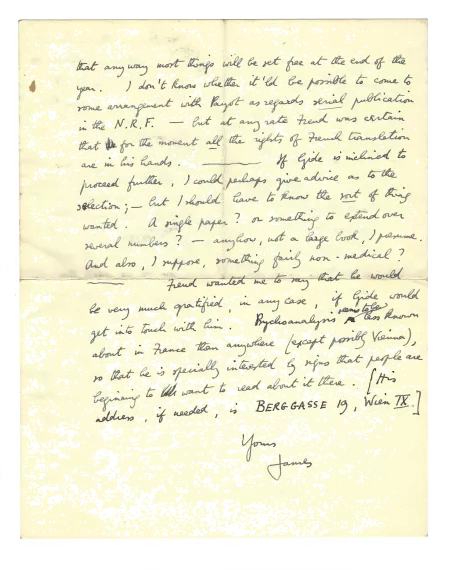 that anyway most things will be set free at the end of the
year. I don't know whether it'ld be possible to come to
some arrangement with Payot as regards serial publication
in the N.R.F. — but at any rate Freud was certain
that for the moment all the rights of French translation
are in his hands. ——— If Gide is inclined to
proceed further, I could perhaps give advice as to the
selection; — but I should have to know the sort of thing
wanted. A single paper? or something to extend over
several numbers? — anyhow, not a large book, I presume.
And also, I suppose, something fairly non-medical?
——— Freud wanted me to say that he would
be very much gratified, in any case, if Gide would
get into touch with him. Psychoanalysis seems to be less known
about in France than anywhere (except possibly Vienna),
so that he is specially interested by signs that people are
beginning to want to read about it there. [His
address, if needed, is BERGGASSE 19, Wien IX.]
Yours
James